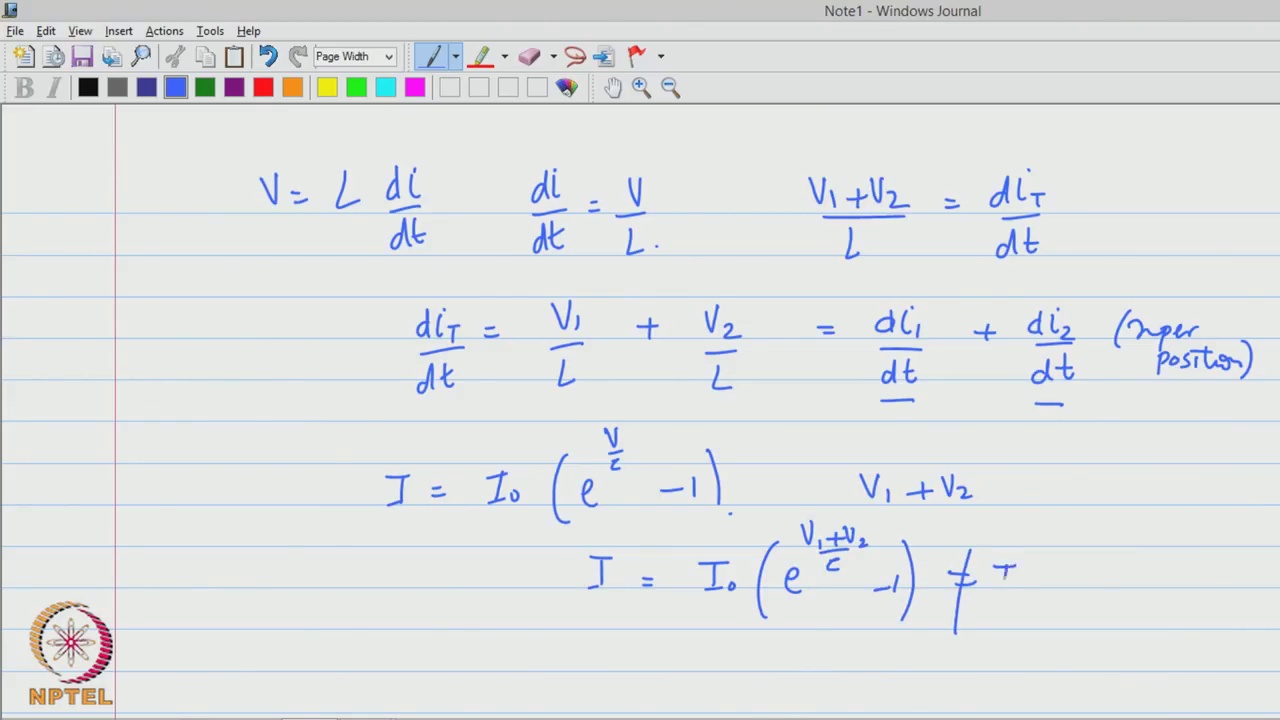 Note1 - Windows Journal
File Edit View Insert Actions Tools Help
Page Width
B I
V = L di/dt di/dt = V/L. (V1+V2)/L = diT/dt
diT/dt = V1/L + V2/L = di1/dt + di2/dt (super
position)
I = I0 (e^(V/c) -1). V1 + V2
I = I0 (e^((V1+V2)/c) -1) ≠ I
NPTEL